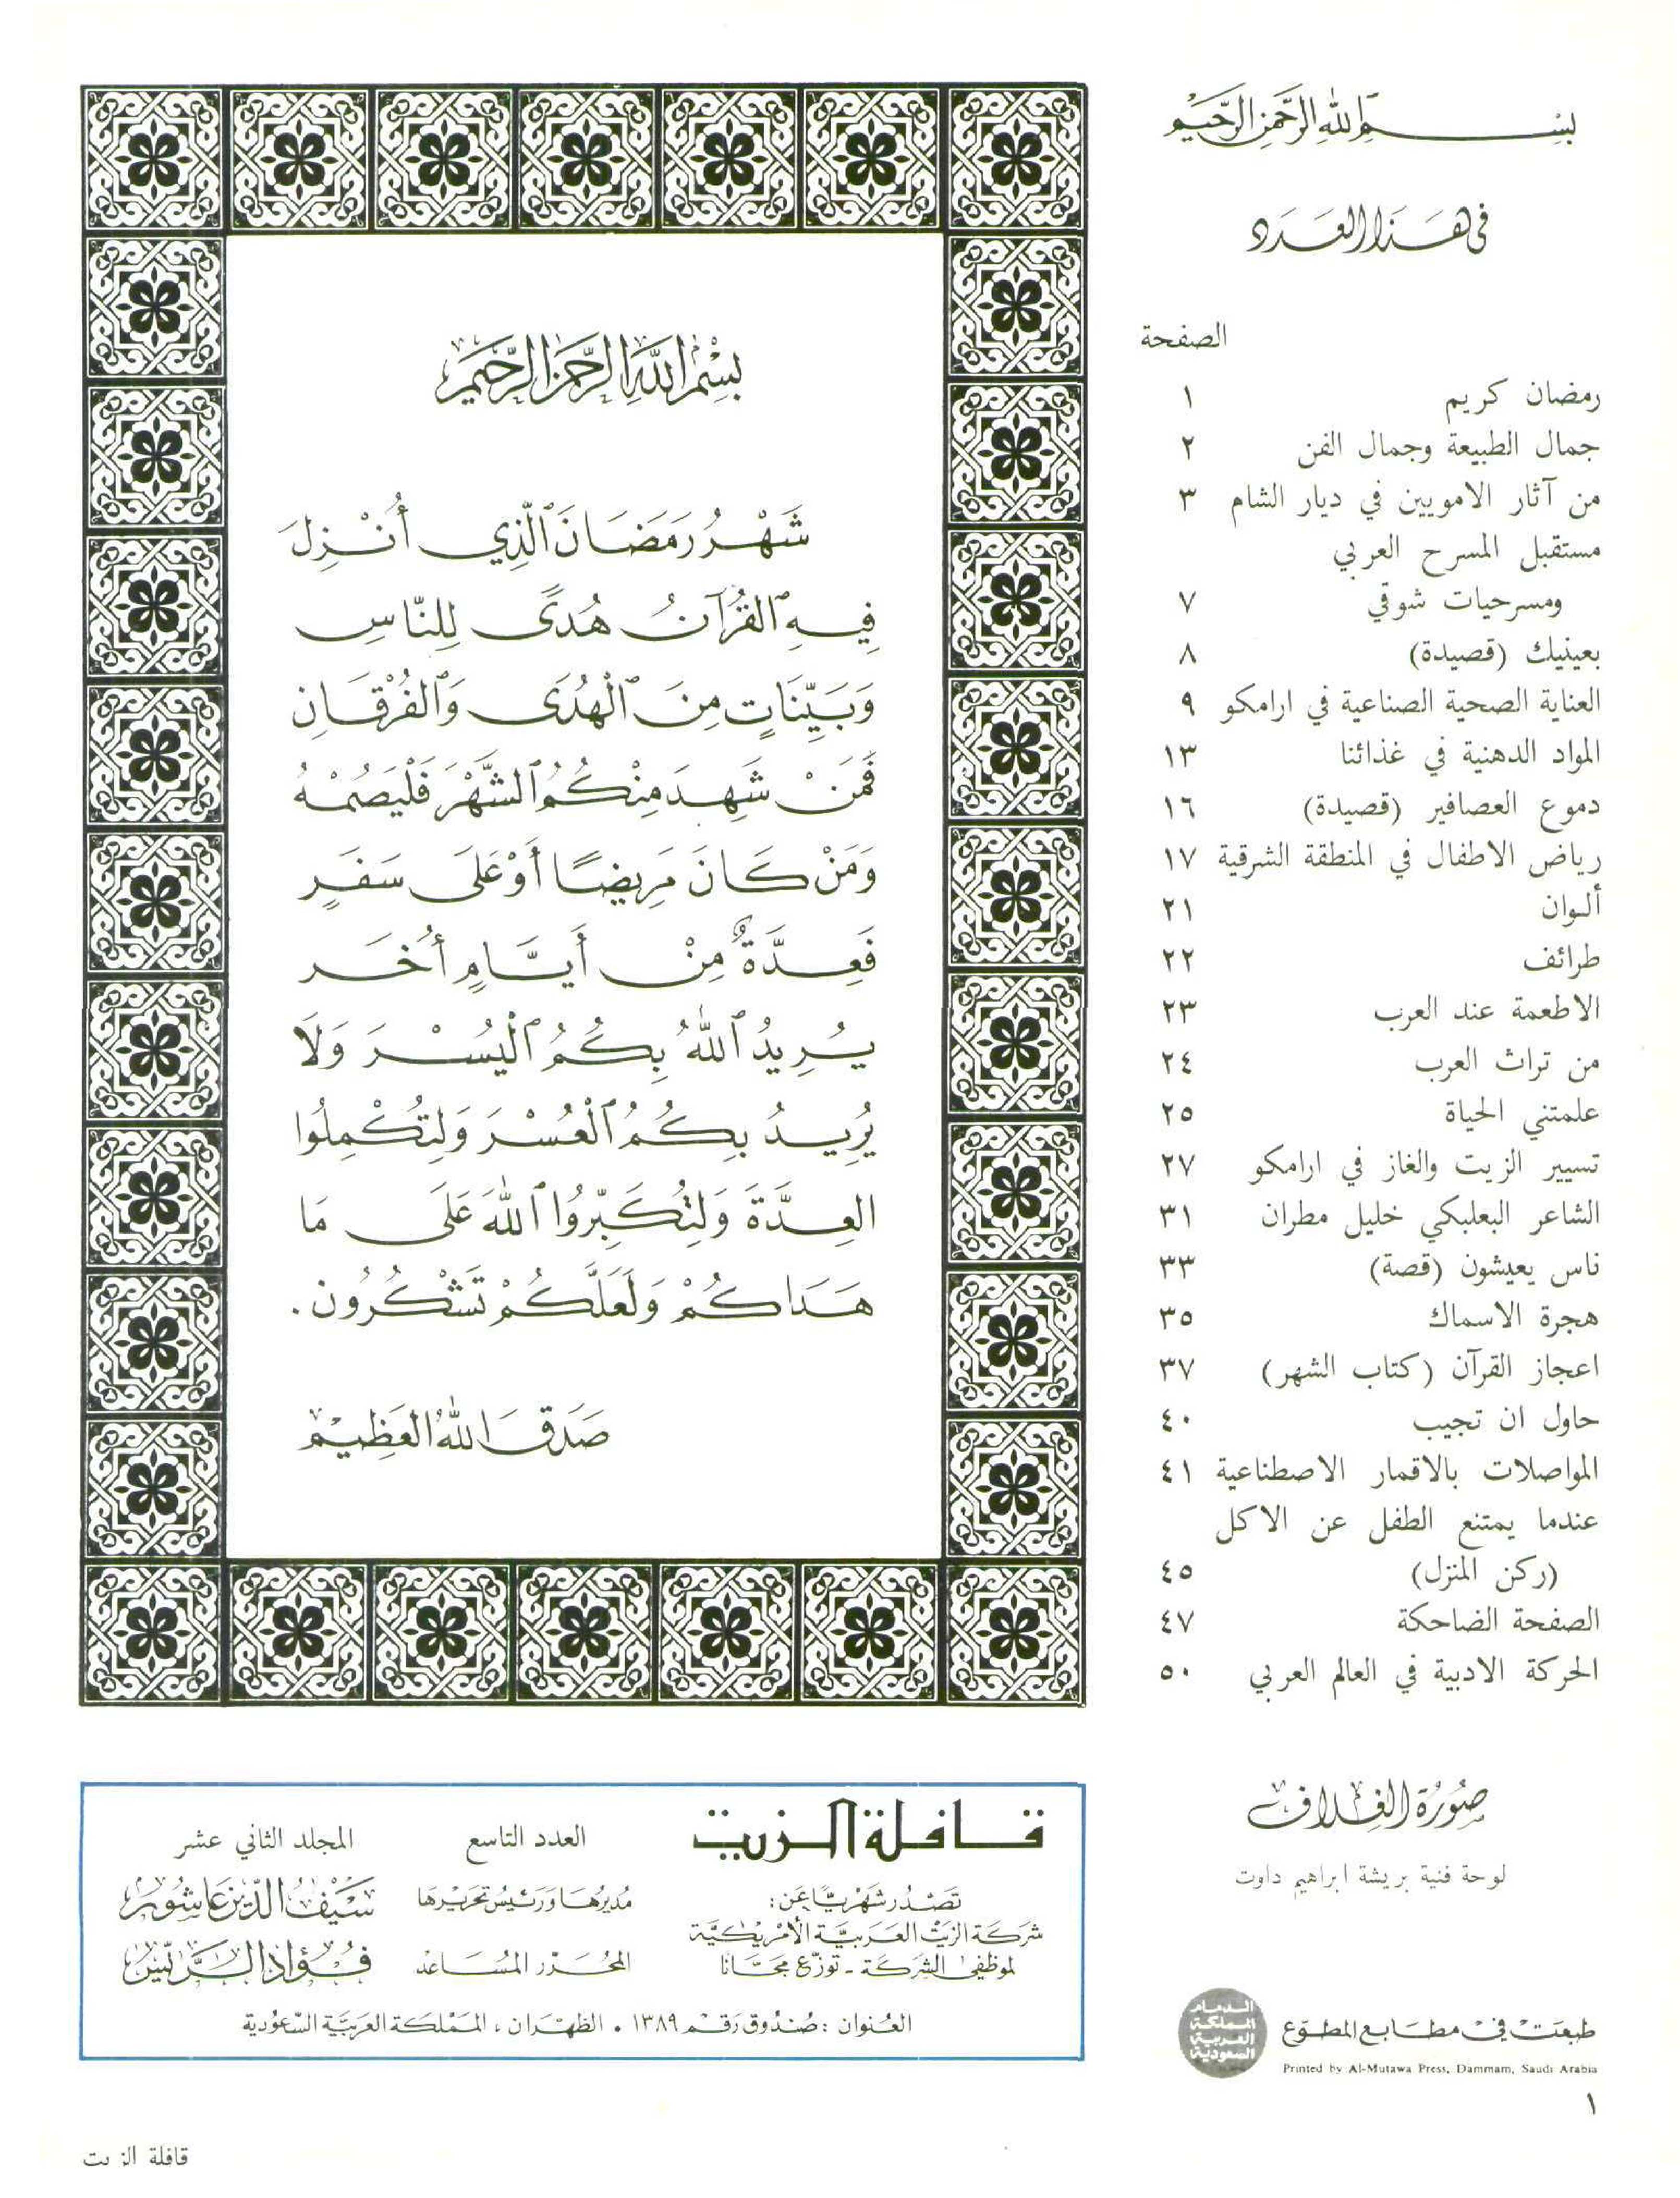 بسم الله الرحمن الرحيم
في هذا العدد
الصفحة
رمضان كريم ١
جمال الطبيعة وجمال الفن ٢
من آثار الامويين في ديار الشام ٣
مستقبل المسرح العربي
ومسرحيات شوقي ٧
بعينيك (قصيدة) ٨
العناية الصحية الصناعية في ارامكو ٩
المواد الدهنية في غذائنا ١٣
دموع العصافير (قصيدة) ١٦
رياض الاطفال في المنطقة الشرقية ١٧
ألوان ٢١
طرائف ٢٢
الاطعمة عند العرب ٢٣
من تراث العرب ٢٤
علمتني الحياة ٢٥
تسيير الزيت والغاز في ارامكو ٢٧
الشاعر البعلبكي خليل مطران ٣١
ناس يعيشون (قصة) ٣٣
هجرة الاسماك ٣٥
اعجاز القرآن (كتاب الشهر) ٣٧
حاول ان تجيب ٤٠
المواصلات بالاقمار الاصطناعية ٤١
عندما يمتنع الطفل عن الاكل
(ركن المنزل) ٤٥
الصفحة الضاحكة ٤٧
الحركة الادبية في العالم العربي ٥٠
صورة الغلاف
لوحة فنية بريشة ابراهيم داوت
طبعت في مطابع المطوع
الدمام
المملكة
العربية
السعودية
Printed by Al-Mutawa Press, Dammam, Saudi Arabia
١
بِسْمِ اللَّهِ الرَّحْمَنِ الرَّحِيمِ
شَهْرُ رَمَضَانَ ٱلَّذِي أُنْزِلَ
فِيهِ ٱلْقُرْآنُ هُدًى لِلنَّاسِ
وَبَيِّنَاتٍ مِنَ ٱلْهُدَى وَٱلْفُرْقَانِ
فَمَنْ شَهِدَ مِنْكُمُ ٱلشَّهْرَ فَلْيَصُمْهُ
وَمَنْ كَانَ مَرِيضًا أَوْ عَلَى سَفَرٍ
فَعِدَّةٌ مِنْ أَيَّامٍ أُخَرَ
يُرِيدُ ٱللَّهُ بِكُمُ ٱلْيُسْرَ وَلَا
يُرِيدُ بِكُمُ ٱلْعُسْرَ وَلِتُكْمِلُوا
العِدَّةَ وَلِتُكَبِّرُوا ٱللَّهَ عَلَى مَا
هَدَاكُمْ وَلَعَلَّكُمْ تَشْكُرُونَ.
صَدَقَ اللهُ العَظِيم
قافلة الزيت
العدد التاسع
المجلد الثاني عشر
تصدر شهريًا عن:
شركة الزيت العربية الأمريكية
لموظفي الشركة - توزع مجانا
مديرها ورئيس تحريرها
سيف الدين عاشور
المحرر المساعد
فؤاد الريس
العنوان : صندوق رقم ١٣٨٩ . الظهران ، المملكة العربية السعودية
قافلة الزيت